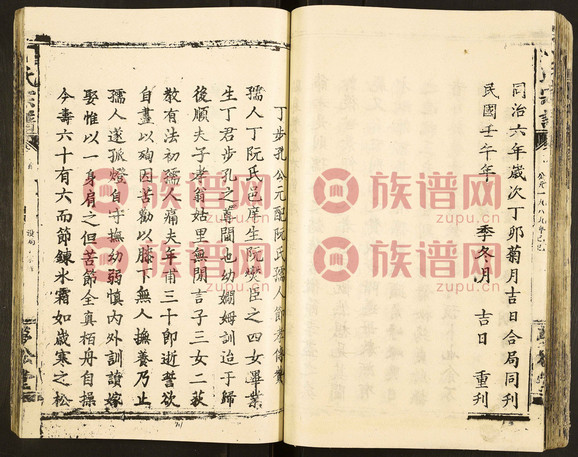 同治六年歲次丁卯菊月吉日合局同刊
民國壬午年 季冬月 吉日 重刊
公元一九八九年己巳
丁步孔公元配阮氏孺人節孝傳贊
孺人丁阮氏邑庠生阮燮臣之四女畢業
生丁君步孔之尊閫也幼嫻姆訓迨于歸
後順夫子孝翁姑里無閒言子三女二荻
教有法初孺人痛夫年甫三十郎逝誓欲
自盡以殉因苦勸以膝下無人撫養乃止
孺人遂孤燈自守撫幼弱慎內外訓讀嫁
娶惟以一身肩之但苦節全真栢舟自操
今壽六十有六而節鍊氷霜如歲寒之松
氏宗譜
族谱网
zupu.cn
族谱网
zupu.cn
族谱网
zupu.cn
族谱网
zupu.cn